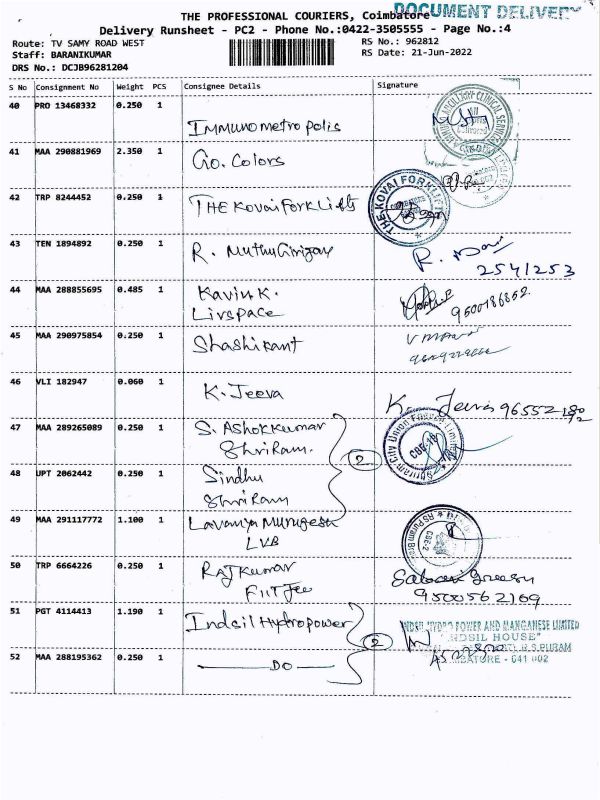 DOCUMENT DELIVERY
THE PROFESSIONAL COURIERS, Coimbatore
Delivery Runsheet - PC2 - Phone No.:0422-3505555 - Page No.:4
Route: TV SAMY ROAD WEST
RS No.: 962812
Staff: BARANIKUMAR
RS Date: 21-Jun-2022
DRS No.: DCJB96281204
S No Consignment No Weight PCS Consignee Details Signature
40 PRO 13468332 0.250 1
Immunometropolis
41 MAA 290881969 2.350 1
Go. Colors
42 TRP 8244452 0.250 1
THE Kovai Forklifts
THE KOVAI FORKLIFTS
43 TEN 1894892 0.250 1
R.
R.
2541253
44 MAA 288855695 0.485 1
Kavin K.
Livspace
9500186852
45 MAA 290975854 0.250 1
Shashikant
46 VLI 182947 0.060 1
K. Jeeva
K.
47 MAA 289265089 0.250 1
S. Ashokkumar
Shriram.
2
Shriram City Union Finance Limited
48 UPT 2062442 0.250 1
Sindhu
Shriram
49 MAA 291117772 1.100 1
Lavanya Murugesh
LVB
CBE-2
50 TRP 6664226 0.250 1
Rajkumar
FIITJee
9500562169
51 PGT 4114413 1.190 1
Indsil Hydropower
2
INDSIL HYDRO POWER AND MANGANESE LIMITED
"INDSIL HOUSE"
R.S.PURAM
COIMBATORE - 641 002
52 MAA 288195362 0.250 1
DO